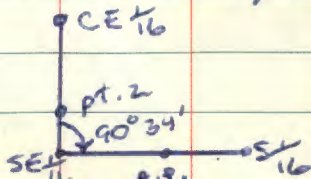 CE 1/16
pt. 2
90° 34'
SE 1/16 S 1/16